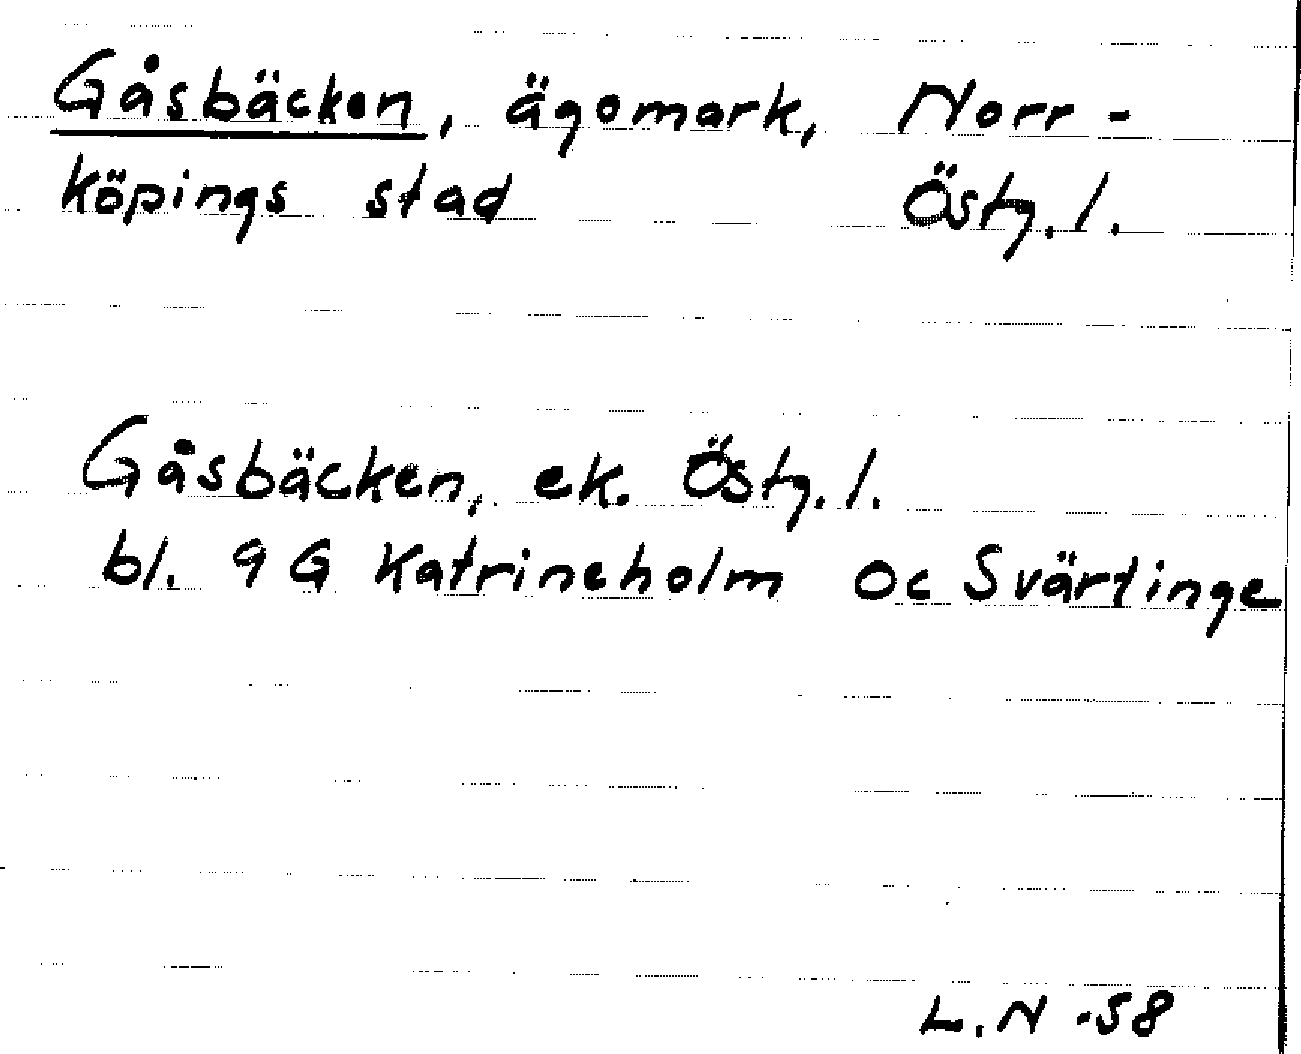 Gåsbäcken, ägomark, Norr-
köpings stad Östg.l.
Gåsbäcken, ek. Östg.l.
bl. 9G Katrineholm Oc Svärtinge
L.N -58